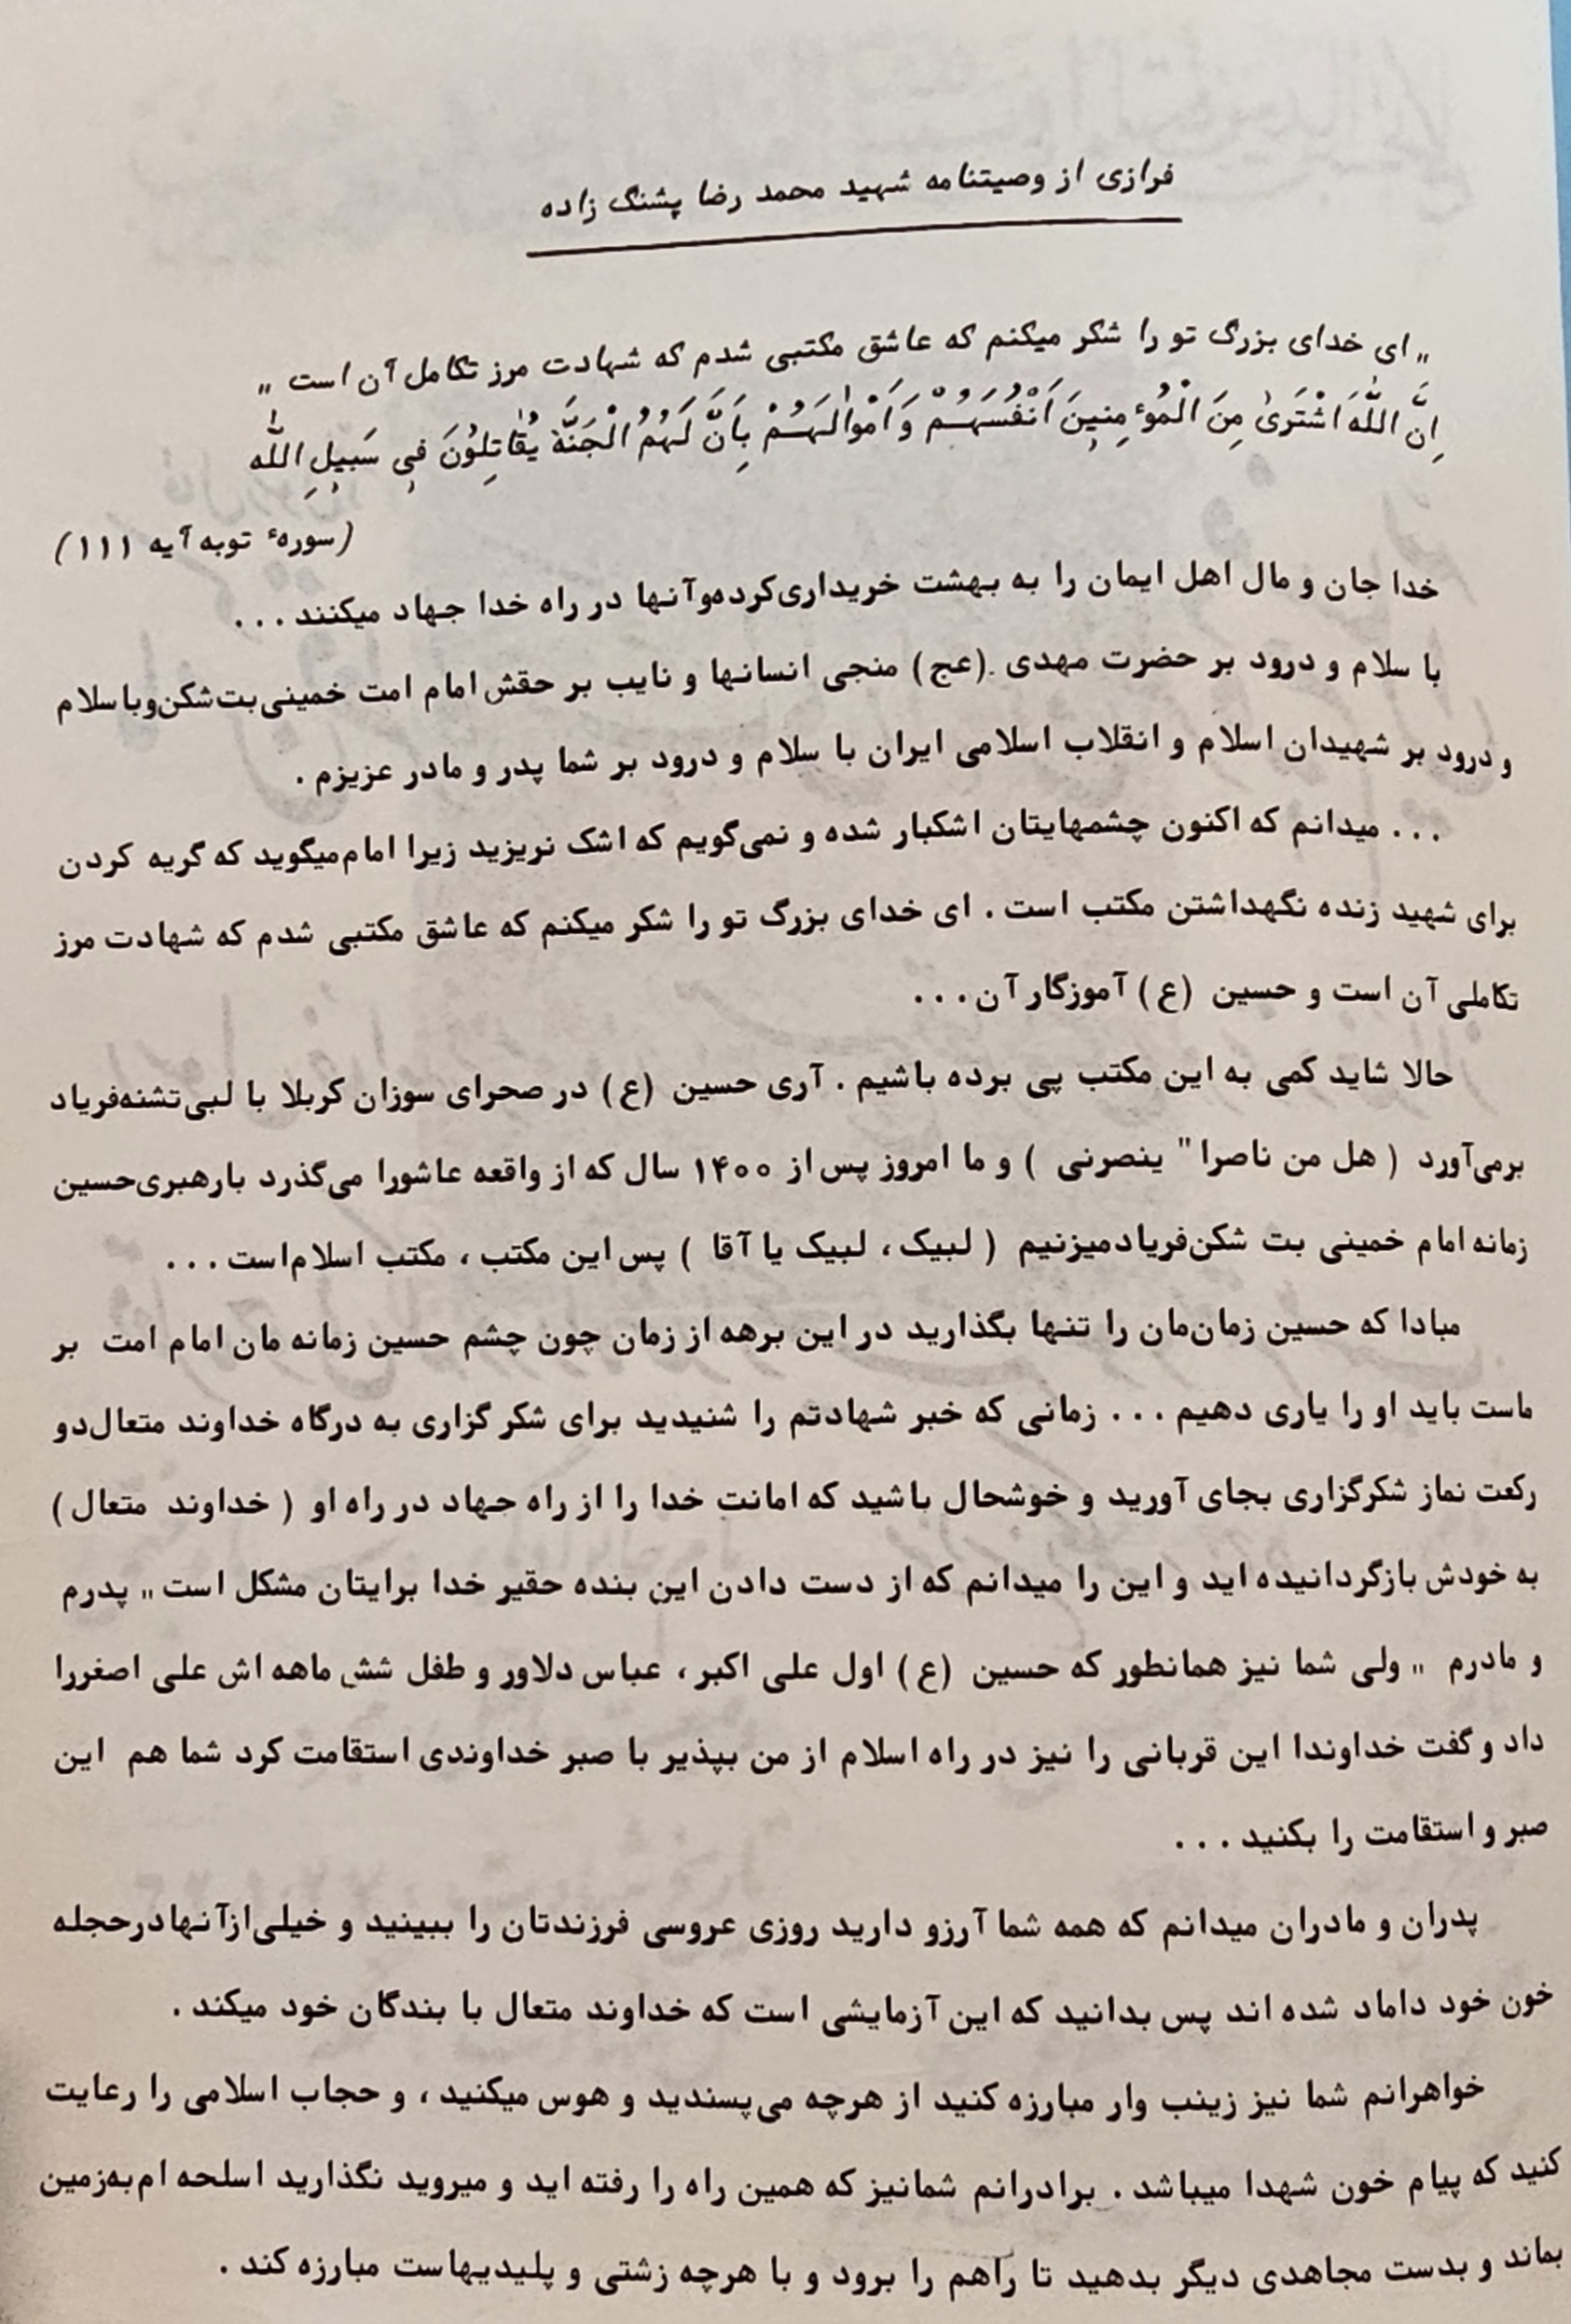 فرازی از وصیتنامه شهید محمد رضا پشنگ زاده
„ ای خدای بزرگ تو را شکر میکنم که عاشق مکتبی شدم که شهادت مرز تکامل آن است „
اِنَّ اللّٰهَ اشْتَرَیٰ مِنَ الْمُوءْمِنِینَ اَنْفُسَهُمْ وَ اَمْوٰالَهُمْ بِاَنَّ لَهُمُ الْجَنَّةَ یُقٰاتِلُونَ فِی سَبِیلِ اللّٰه
(سورهٔ توبه آیه ۱۱۱)
خدا جان و مال اهل ایمان را به بهشت خریداری‌کرده‌وآنها در راه خدا جهاد میکنند ...
با سلام و درود بر حضرت مهدی (عج) منجی انسانها و نایب بر حقش امام امت خمینی‌بت‌شکن‌وباسلام
و درود بر شهیدان اسلام و انقلاب اسلامی ایران با سلام و درود بر شما پدر و مادر عزیزم .
... میدانم که اکنون چشمهایتان اشکبار شده و نمی‌گویم که اشک نریزید زیرا امام‌میگوید که گریه کردن
برای شهید زنده نگهداشتن مکتب است . ای خدای بزرگ تو را شکر میکنم که عاشق مکتبی شدم که شهادت مرز
تکاملی آن است و حسین (ع) آموزگار آن ...
حالا شاید کمی به این مکتب پی برده باشیم . آری حسین (ع) در صحرای سوزان کربلا با لبی‌تشنه‌فریاد
برمی‌آورد ( هل من ناصرا" ینصرنی ) و ما امروز پس از ۱۴۰۰ سال که از واقعه عاشورا می‌گذرد بارهبری‌حسین
زمانه امام خمینی بت شکن‌فریادمیزنیم ( لبیک، لبیک یا آقا ) پس این مکتب ، مکتب اسلام‌است ...
مبادا که حسین زمان‌مان را تنها بگذارید در این برهه از زمان چون چشم حسین زمانه مان امام امت بر
ماست باید او را یاری دهیم ... زمانی که خبر شهادتم را شنیدید برای شکر گزاری به درگاه خداوند متعال‌دو
رکعت نماز شکرگزاری بجای آورید و خوشحال باشید که امانت خدا را از راه جهاد در راه او ( خداوند متعال )
به خودش بازگردانیده اید و این را میدانم که از دست دادن این بنده حقیر خدا برایتان مشکل است „ پدرم
و مادرم „ ولی شما نیز همانطور که حسین (ع) اول علی اکبر ، عباس دلاور و طفل شش ماهه اش علی اصغررا
داد و گفت خداوندا این قربانی را نیز در راه اسلام از من بپذیر با صبر خداوندی استقامت کرد شما هم این
صبر و استقامت را بکنید ...
پدران و مادران میدانم که همه شما آرزو دارید روزی عروسی فرزندتان را ببینید و خیلی‌ازآنهادرحجله
خون خود داماد شده اند پس بدانید که این آزمایشی است که خداوند متعال با بندگان خود میکند .
خواهرانم شما نیز زینب وار مبارزه کنید از هرچه می‌پسندید و هوس میکنید ، و حجاب اسلامی را رعایت
کنید که پیام خون شهدا میباشد . برادرانم شمانیز که همین راه را رفته اید و میروید نگذارید اسلحه ام‌به‌زمین
بماند و بدست مجاهدی دیگر بدهید تا راهم را برود و با هرچه زشتی و پلیدیهاست مبارزه کند .